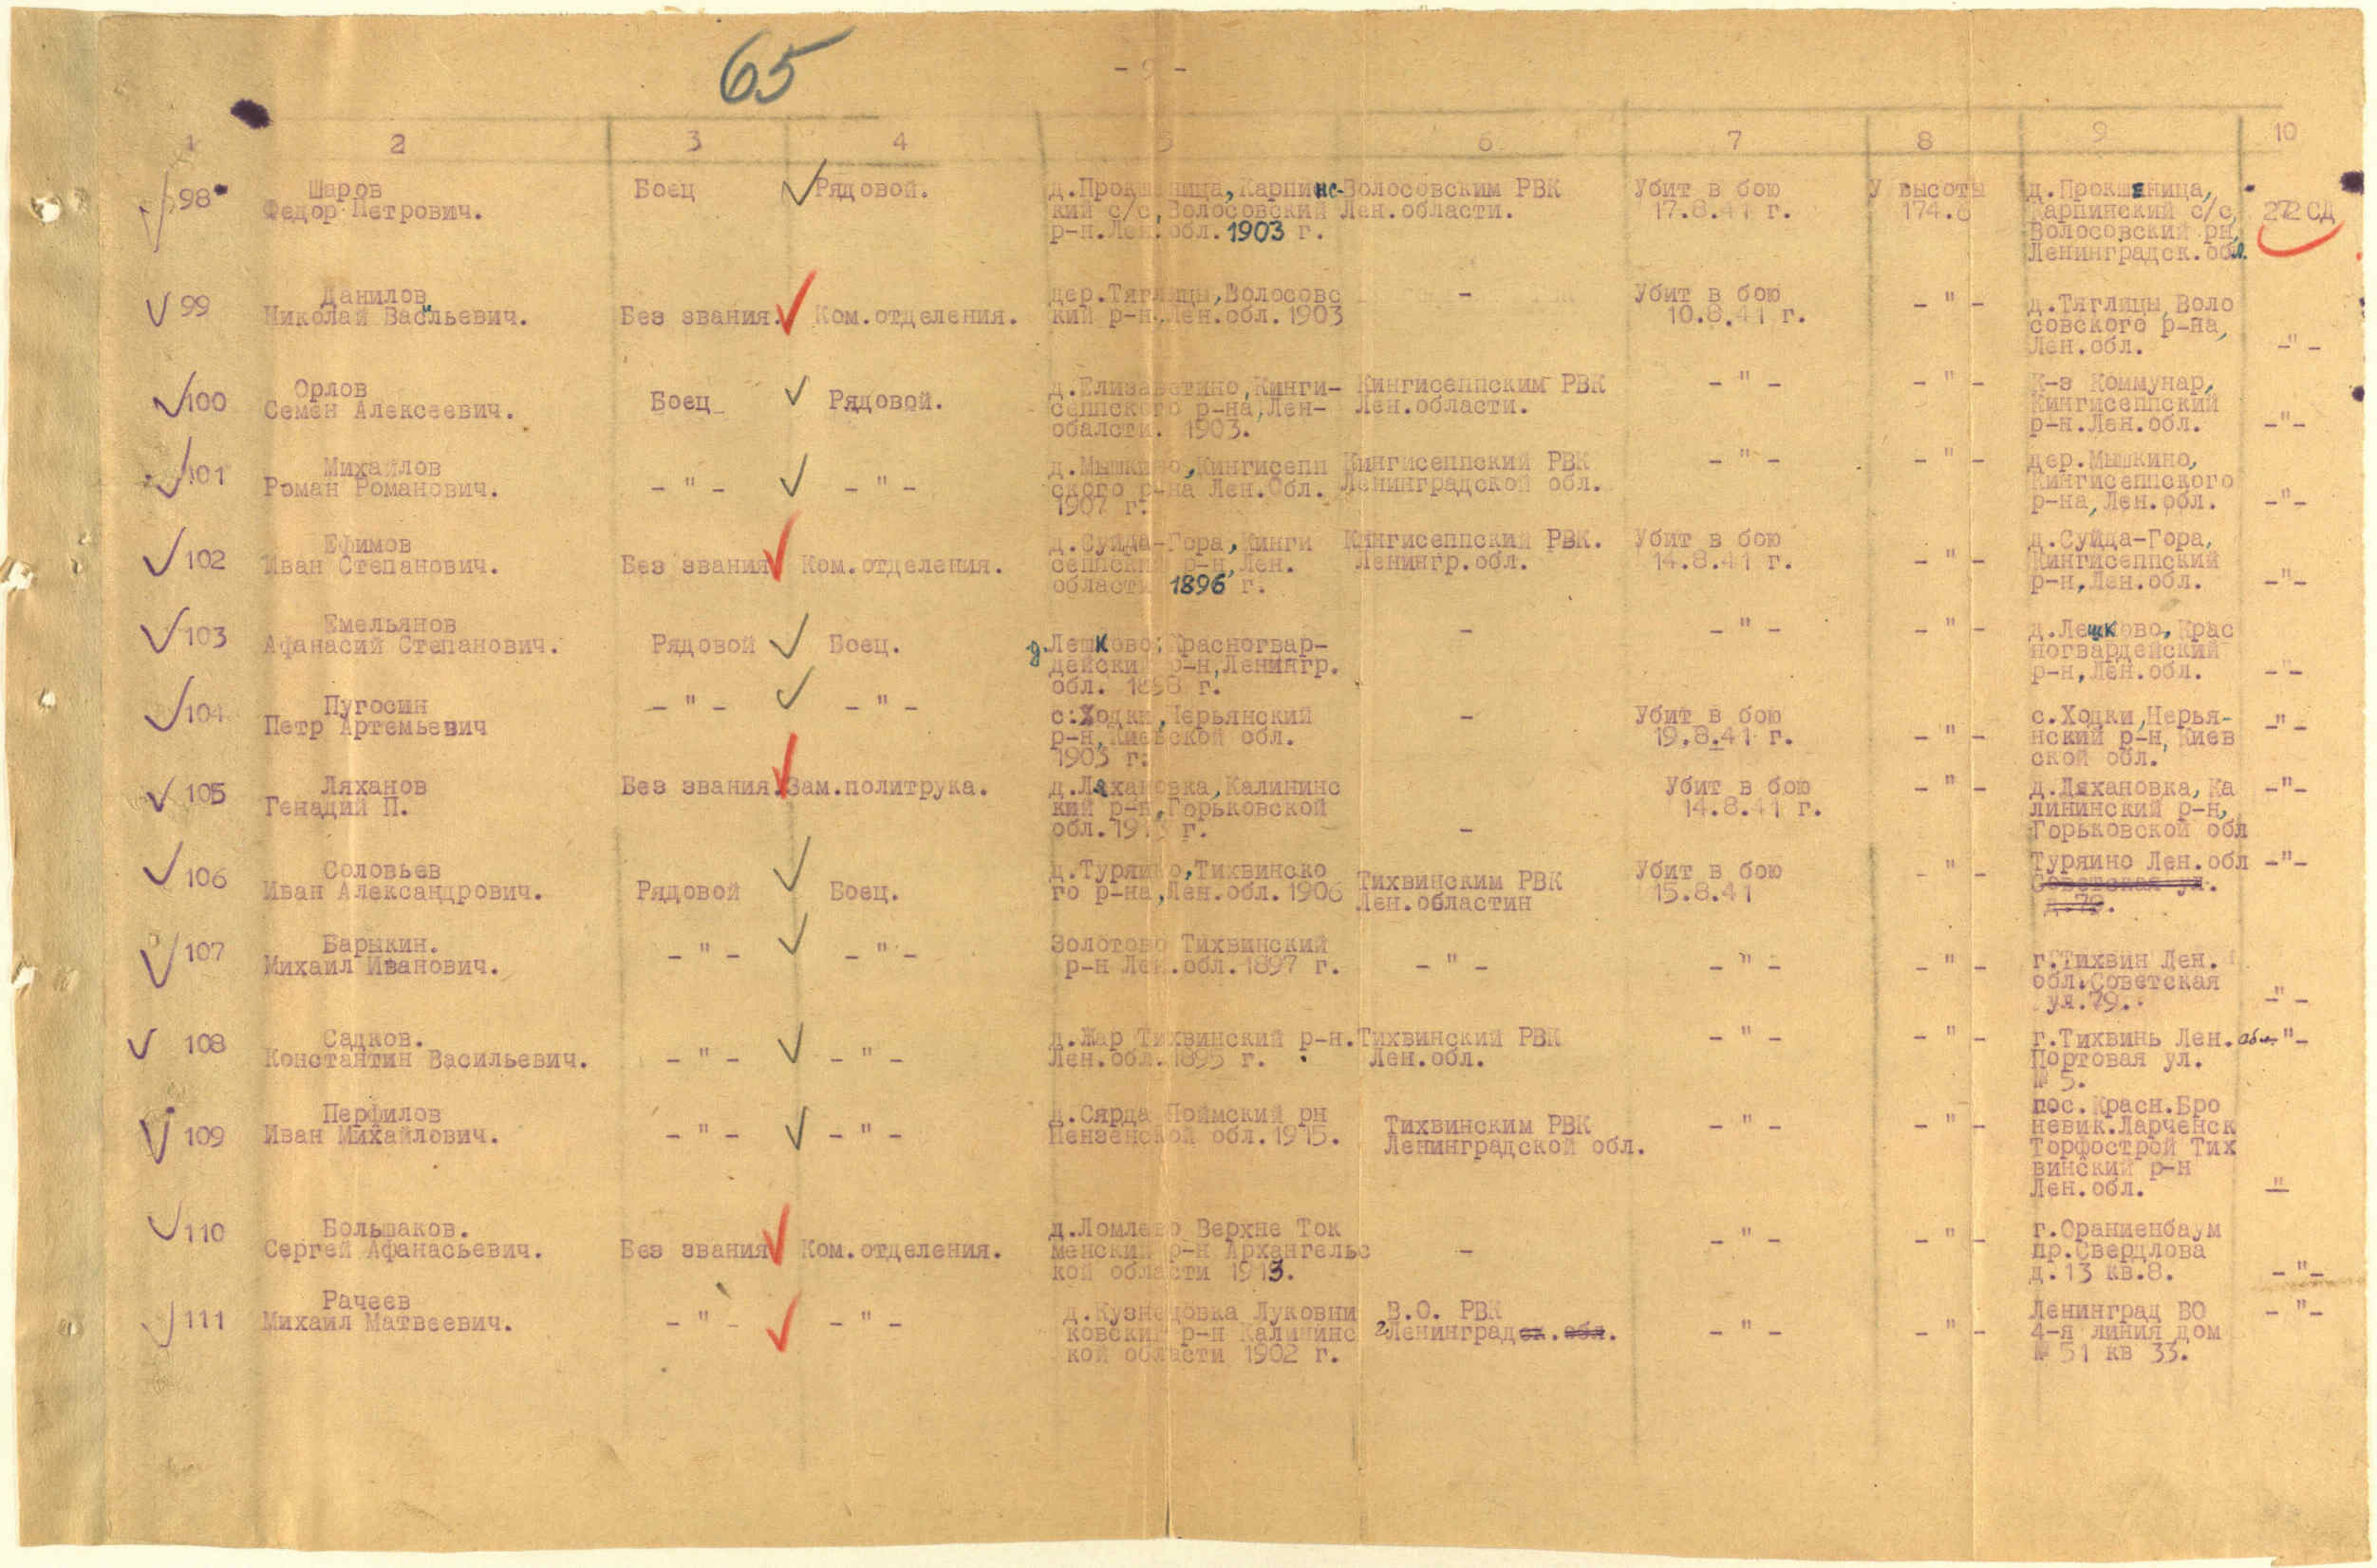 65
- 9 -
1 2 3 4 5 6 7 8 9 10
98
Шаров
Федор Петрович.
Боец
Рядовой.
д.Прокшеница, Карпинс-
кий с/с, Волосовский
р-н.Лен.обл. 1903 г.
Волосовским РВК
Лен.области.
Убит в бою
17.8.41 г.
У высоты
174.8
д.Прокшеница,
Карпинский с/с,
Волосовский рн,
Ленинградск.обл.
272 СД
99
Данилов
Николай Васильевич.
Без звания.
Ком.отделения.
дер.Тяглицы, Волосовс
кий р-н.Лен.обл.1903
-
Убит в бою
10.8.41 г.
- " -
д.Тяглицы, Воло
совского р-на,
Лен.обл.
-"-
100
Орлов
Семен Алексеевич.
Боец
Рядовой.
д.Елизаветино, Кинги-
сеппского р-на, Лен-
обалсти. 1903.
Кингисеппским РВК
Лен.области.
- " -
- " -
К-з Коммунар,
Кингисеппский
р-н.Лен.обл.
-"-
101
Михайлов
Роман Романович.
- " -
- " -
д.Мышкино, Кингисепп
ского р-на Лен.Обл.
1907 г.
Кингисеппский РВК
Ленинградской обл.
- " -
- " -
дер.Мышкино,
Кингисеппского
р-на, Лен.обл.
-"-
102
Ефимов
Иван Степанович.
Без звания
Ком.отделения.
д.Суйда-Гора, Кинги
сеппский р-н, Лен.
области 1896 г.
Кингисеппский РВК.
Ленингр.обл.
Убит в бою
14.8.41 г.
- " -
д.Суйда-Гора,
Кингисеппский
р-н, Лен.обл.
-"-
103
Емельянов
Афанасий Степанович.
Рядовой
Боец.
д.Лешково; Красногвар-
дейский р-н, Ленингр.
обл. 1898 г.
-
- " -
- " -
д.Лешково, Крас
ногвардейский
р-н, Лен.обл.
-"-
104
Пугосин
Петр Артемьевич
- " -
- " -
с.Ходки, Черьянский
р-н, Киевской обл.
1903 г.
-
Убит в бою
19.8.41 г.
- " -
с.Ходки, Нерья-
нский р-н, Киев
ской обл.
-"-
105
Ляханов
Генадий П.
Без звания.
Зам.политрука.
д.Ляхановка, Калининс
кий р-н, Горьковской
обл.19 г.
-
Убит в бою
14.8.41 г.
- " -
д.Ляхановка, Ка
лининский р-н,
Горьковской обл
-"-
106
Соловьев
Иван Александрович.
Рядовой
Боец.
д.Туряино, Тихвинско
го р-на, Лен.обл.1906
Тихвинским РВК
Лен.областин
Убит в бою
15.8.41
- " -
Туряино Лен.обл
Советская ул.
д.79.
-"-
107
Барыкин.
Михаил Иванович.
- " -
- " -
Золотово Тихвинский
р-н Лен.обл.1897 г.
- " -
- " -
- " -
г.Тихвин Лен.
обл.Советская
ул.79.
-"-
108
Садков.
Константин Васильевич.
- " -
- " -
д.Жар Тихвинский р-н.
Лен.обл.1895 г.
Тихвинский РВК
Лен.обл.
- " -
- " -
г.Тихвинь Лен. обл.
Портовая ул.
№ 5.
-"-
109
Перфилов
Иван Михайлович.
- " -
- " -
д.Сярда Поймский рн
Пензенской обл.1915.
Тихвинским РВК
Ленинградской обл.
- " -
- " -
пос.Красн.Бро
невик.Ларченск
Торфострой Тих
винский р-н
Лен.обл.
"
110
Большаков.
Сергей Афанасьевич.
Без звания
Ком.отделения.
д.Ломлево Верхне Ток
менский р-н Архангельс
кой области 1913.
-
- " -
- " -
г.Ораниенбаум
пр.Свердлова
д.13 кв.8.
-"-
111
Рачеев
Михаил Матвеевич.
- " -
- " -
д.Кузнецовка Луковни
ковский р-н Калининс
кой области 1902 г.
В.О. РВК
г Ленинградск.обл.
- " -
- " -
Ленинград ВО
4-я линия дом
№ 51 кв 33.
-"-